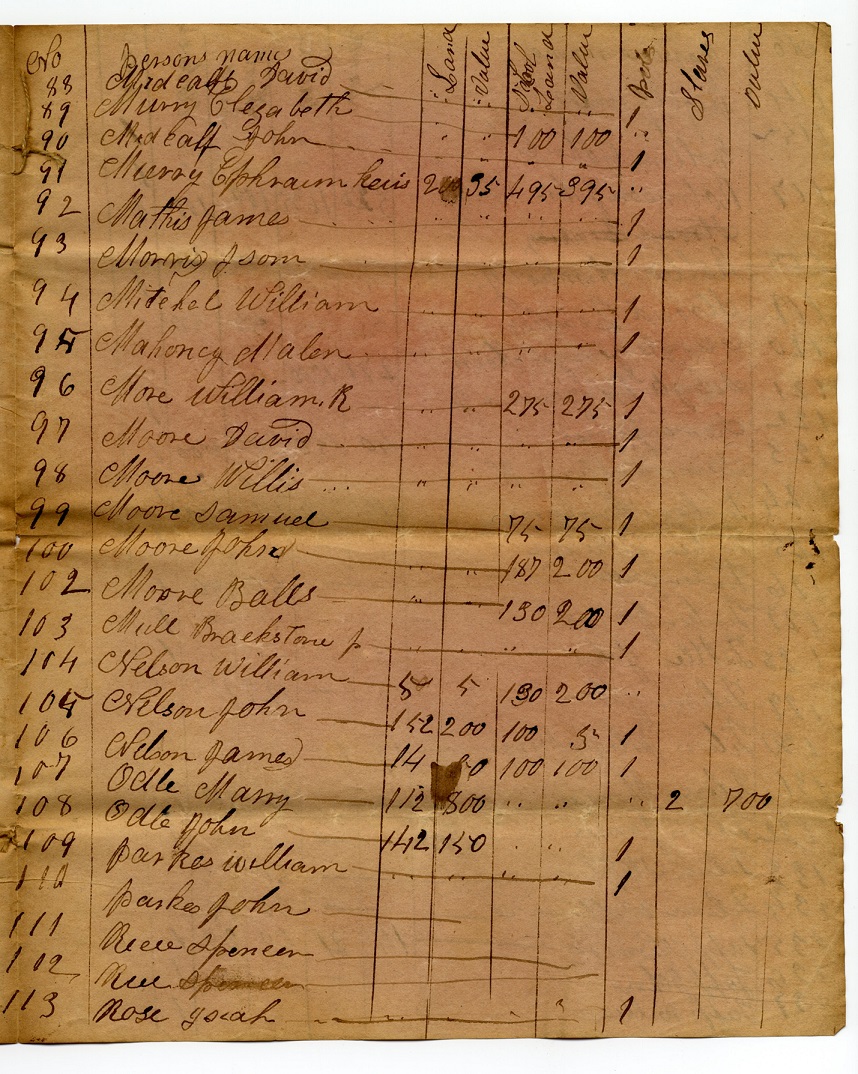 No Persons name Land Value Land Value Slaves Value
88 Midcalf David " " " "
89 Murry Elezabeth " " " " 1
90 Midcalf John " " 100 100 "
91 Murry Ephraim heirs 200 35 495 395 "
92 Mathis James 1
93 Morris Isom 1
94 Mitchel William 1
95 Mahoney Malen 1
96 More William. R " " 275 275 1
97 Moore David 1
98 Moore Willis " " " " 1
99 Moore Samuel 75 75 1
100 Moore John " " 187 200 1
102 Moore Balls " " 130 200 1
103 Mull Brackstone p " " " " 1
104 Nelson William 5 5 130 200 "
105 Nelson John 152 200 100 1
106 Nelson James 14 100 100 1
107 Odle Marry 112 800 " " " 2 700
108 Odle John 142 150 " " 1
109 Parkes William " " " " 1
110 Parkes John
111 Rice Spencer
102 Rice Spencer
113 Rose ysiah 1